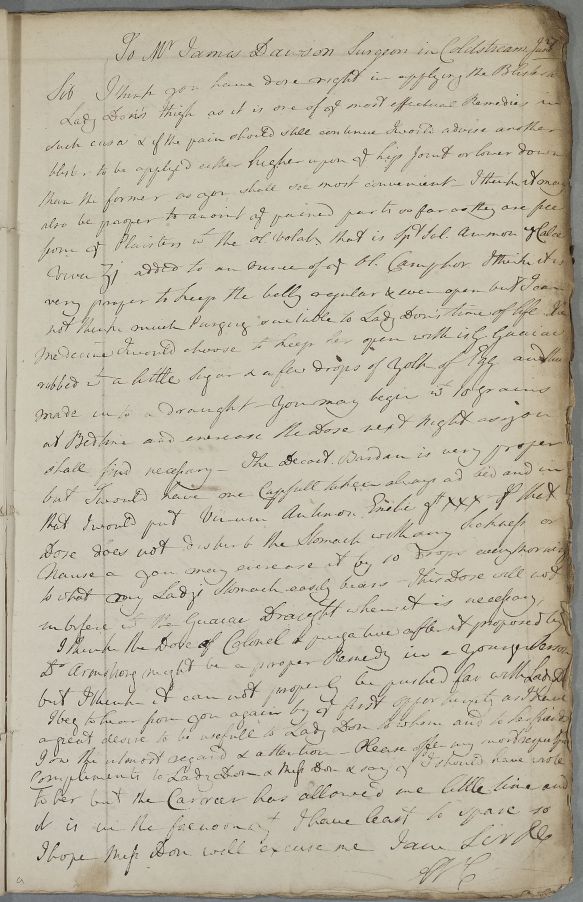 To Mr. James Dawson Surgeon in Coldstream,
Sir I think you have done right in applying the Blister
Lady Don's thigh as it is one of ye most effectual Remedies in
such cases & if the pain should still continue I would advise another
blister to be applyed either higher upon ye hip Joint or lower down
than the former as you shall see most convenient - I think it may
also be proper to anoint ye pained parts so far as they are free
from ye Plaisters wt the ol. Volat. that is Spt. Sal. Ammon & Calce
Viva ʒi added to an ounce of ye ol. Camphor. I think it is
very proper to keep the belly regular & even open but I can
not think much Purging suitable to Lady Don's time of life. The
medicine I would choose to keep her open with is G. Guaiac
rubbed wt a little Sugar & a few drops of Yolk of Egg and thus
made into a draught - You may begin wt 10 grains
at Bedtime and encrease the Dose next night as you
shall find necessary - The Decoct. Bardan. is very proper
but I would have one Cupfull taken always a bed and in
that I would put Vinum Antimon. Gtt XXX - If that
Dose does not disturb the Stomach with any Sickness or
Nausea you may encrease it by 10 drops every morning
to what my Lady's Stomach easily bears - This Dose will not
interfere wt the Guaiac Draught when it is necessary.
I think the Dose of Calomel & purgative after it proposed by
Dr Armstrong might be a proper Remedy in a younger Person
but I think it can not properly be pushed far with Lady D
I beg to hear from you again by ye first opportunity as I have
a great desire to be usefull to Lady Don to whom and to her friends
I owe the utmost regard & attention - Please offer my most respectfull
Complements to Lady Don & Miss Don & say yt I should have wrote
to her but the Carrier has allowed me little time and
it is in the forenoon yt I have least to spare so
I hope Miss Don will excuse me I am Sir &c
WC